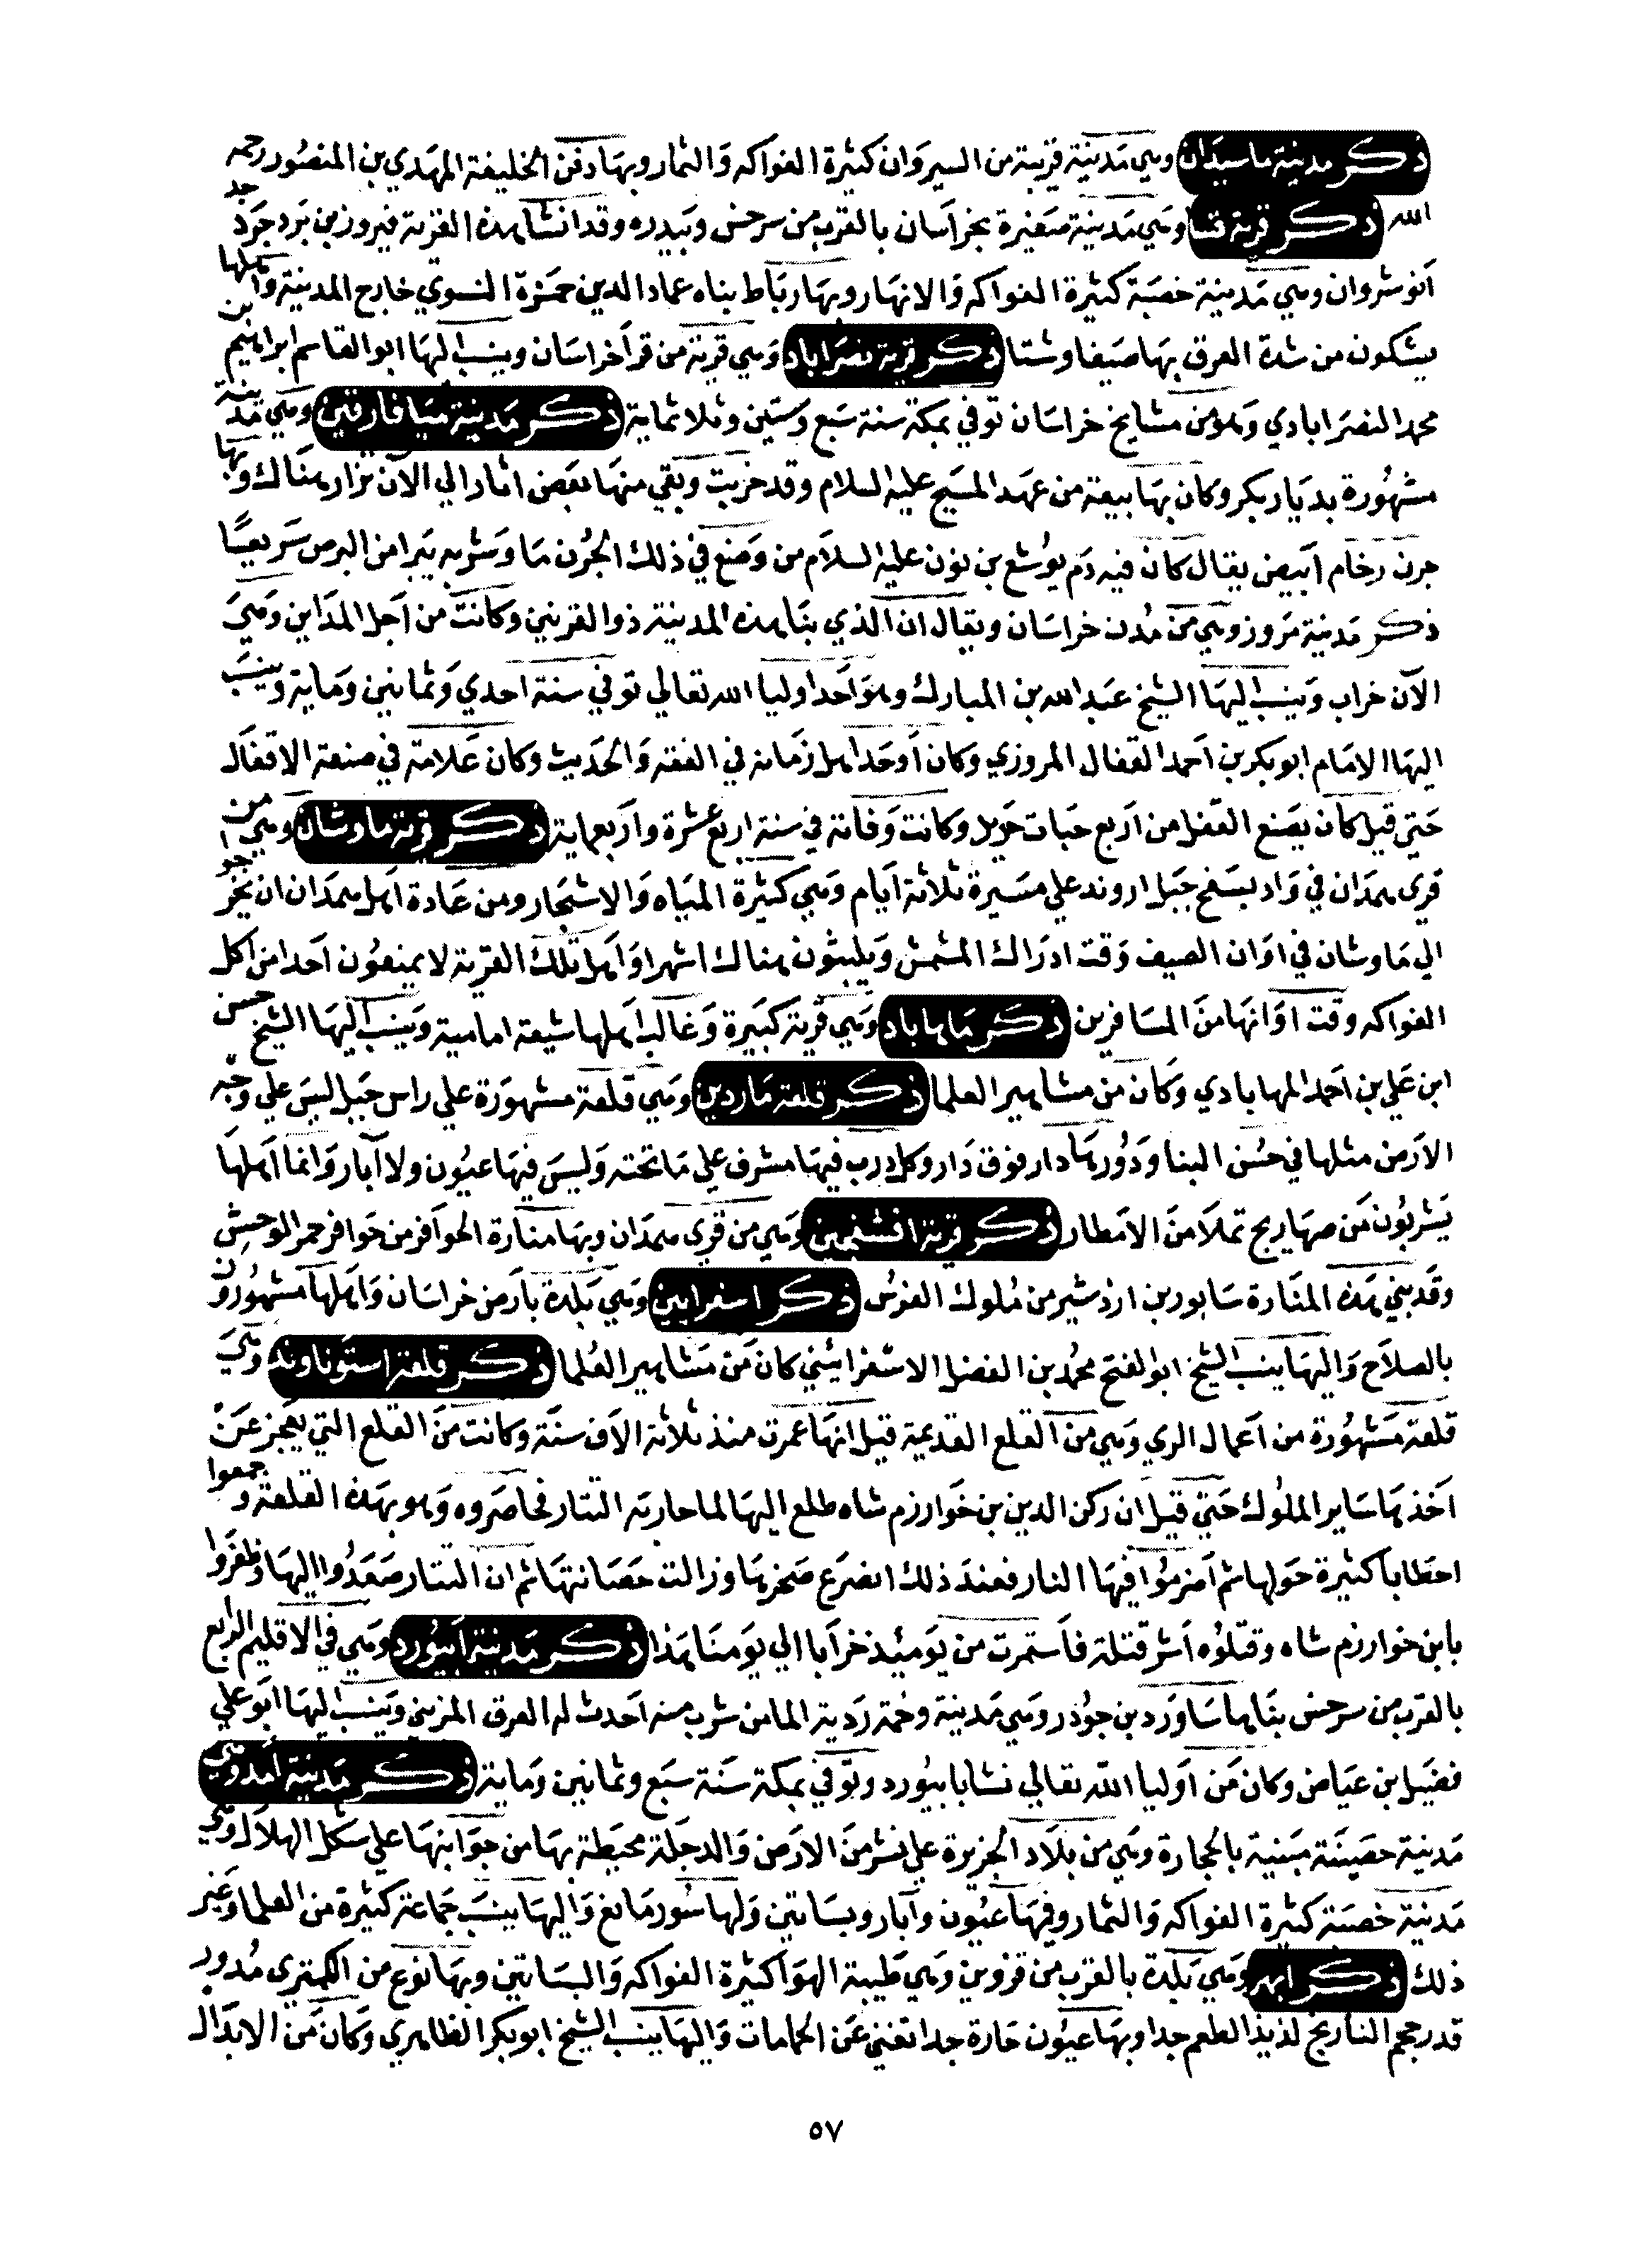 ذكر مدينة ماسبدان وهي مدينة قريبة من السيروان كثيرة الفواكه والثمار وبها دفن الخليفة المهدي بن المنصور رحمه
الله ذكر قرية نسا وهي مدينة صغيرة بخراسان بالقرب من سرخس وبيدره وقد انشا هذه القرية فيروز بن يزدجرد جد
انوشروان وهي مدينة خصبة كثيرة الفواكه والانهار وبها رباط بناه عماد الدين حمزة النسوي خارج المدينة واهلها
يشكون من شدة العرق بها صيفا وشتا ذكر قرية نصراباد وهي قرية من قرا خراسان وينسب اليها ابو القاسم ابراهيم بن
محمد النصرابادي وهو من مشايخ خراسان توفي بمكة سنة سبع وستين وثلاثماية ذكر مدينة ميافارقين وهي مدينة
مشهورة بديار بكر وكان بها بيعة من عهد المسيح عليه السلام وقد خربت وبقي منها بعض اثار الي الآن تزار هناك وبها
جرن رخام ابيض يقال كان فيه دم يوشع بن نون عليه السلام من وضع في ذلك الجرن ما وشربه يبرا من البرص سريعًا
ذكر مدينة مروز وهي من مدن خراسان ويقال ان الذي بنا هذه المدينة ذو القرنين وكانت من اجل المداين وهي
الآن خراب وينسب اليها الشيخ عبد الله بن المبارك وهو احد اوليا الله تعالي توفي سنة احدي وثمانين وماية وينسب
اليها الامام ابو بكر بن احمد القفال المروزي وكان اوحد اهل زمانه في الفقه والحديث وكان علامة في صنعة الاقفال
حتي قيل كان يصنع القفل من اربع حبات حويل وكانت وفاته في سنة اربع عشرة واربعماية ذكر قرية ماوشان وهي من
قري همدان في واد بسفح جبل اروند علي مسيرة ثلاثة ايام وهي كثيرة المياه والاشجار ومن عادة اهل همدان ان يخرجوا
الي ماوشان في اوان الصيف وقت ادراك المشمش ويلبثون هناك اشهرا واهل تلك القرية لا يمنعون احدا من اكل
الفواكه وقت اوانها من المسافرين ذكر ماهاباد وهي قرية كبيرة وغالب اهلها شيعة امامية وينسب اليها الشيخ حسن
ابن علي بن احمد المهابادي وكان من مشاهير العلما ذكر قلعة ماردين وهي قلعة مشهورة علي راس جبل ليس علي وجه
الارض مثلها في حسن البنا ودورها دار فوق دار وكل درب فيها مشرف علي ما تحته وليس فيها عيون ولا آبار وانما اهلها
يشربون من صهاريج تملا من الامطار ذكر قرية وهي من قري همدان وبها منارة الحوافر من حوافر حمر الوحش
وقد بني هذه المنارة سابور بن اردشير من ملوك الفرس ذكر اسفرايين وهي بلدة بارض خراسان واهلها مشهورون
بالصلاح واليها ينسب الشيخ ابو الفتح محمد بن الفضل الاسفرايني كان من مشاهير العلما ذكر قلعة استوناوند وهي
قلعة مشهورة من اعمال الري وهي من القلع القديمة قيل انها عمرت منذ ثلاثة الاف سنة وكانت من القلع التي يعجز عن
اخذها ساير الملوك حتي قيل ان ركن الدين بن خوارزم شاه طلع اليها لما حاربته التتار فحاصروه وهو بهذه القلعة وجمعوا
احطابا كثيرة حولها ثم اضرموا فيها النار فعند ذلك انصرع صخرها وزالت حصانتها ثم ان التتار صعدوا اليها وظفروا
بابن خوارزم شاه وقتلوه اشر قتلة فاستمرت من يومئذ خرابا الي يومنا هذا ذكر مدينة ابيورد وهي في الاقليم الرابع
بالقرب من سرخس بناها ساورد بن جوذر وهي مدينة وخمة ردية الما من شرب منه احدث له العرق المزني وينسب اليها ابو علي
فضيل بن عياض وكان من اوليا الله تعالي نشا بابيورد وتوفي بمكة سنة سبع وثمانين وماية ذكر مدينة آمد وهي
مدينة حصينة مبنية بالحجارة وهي من بلاد الجزيرة علي نشز من الارض والدجلة محيطة بها من جوانبها علي شكل الهلال وهي
مدينة خصبة كثيرة الفواكه والثمار وفيها عيون وآبار وبساتين ولها سور مانع واليها ينسب جماعة كثيرة من العلما وغير
ذلك ذكر ابهر وهي بلدة بالقرب من قزوين وهي طيبة الهوا كثيرة الفواكه والبساتين وبها نوع من الكمتري مدور
قدر حجم النارنج لذيذ الطعم جدا وبها عيون حارة جدا تغني عن الحمامات واليها ينسب الشيخ ابو بكر الظاهري وكان من الابدال
٥٧